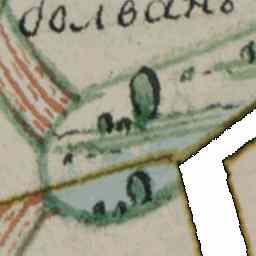 болванъ